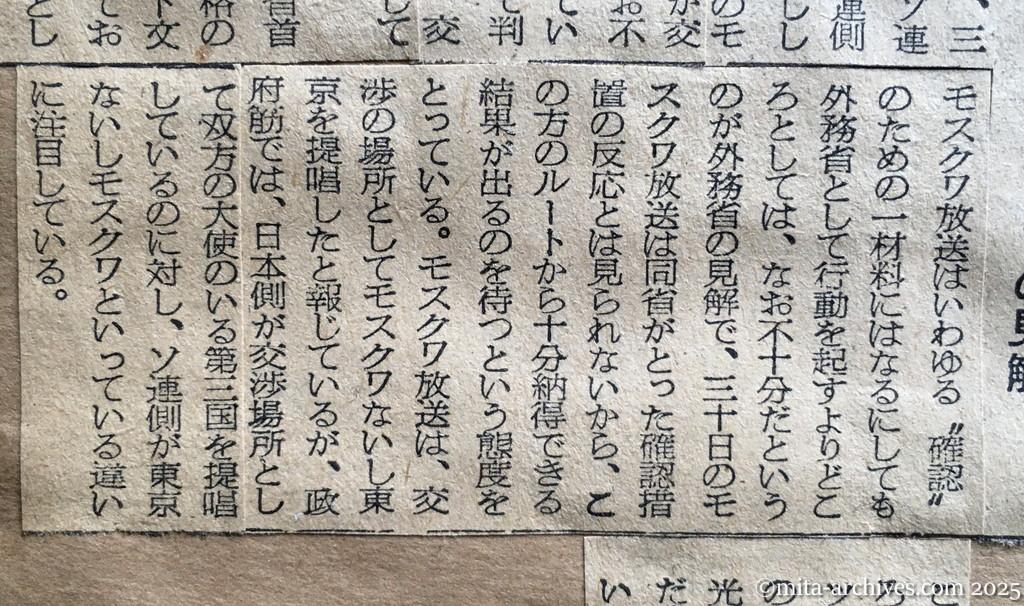 、三
ソ連
連側
しし
のモ
が交
お不
てい
て判
、交
して
省首
格の
ト文
てお
とし
の見解
モスクワ放送はいわゆる〝確認〟
のための一材料にはなるにしても
外務省として行動を起すよりどこ
ろとしては、なお不十分だという
のが外務省の見解で、三十日のモ
スクワ放送は同省がとった確認措
置の反応とは見られないから、こ
の方のルートから十分納得できる
結果が出るのを待つという態度を
とっている。モスクワ放送は、交
渉の場所としてモスクワないし東
京を提唱したと報じているが、政
府筋では、日本側が交渉場所とし
て双方の大使のいる第三国を提唱
しているのに対し、ソ連側が東京
ないしモスクワといっている違い
に注目している。
の
光
だ
い
©mita-archives.com 2025